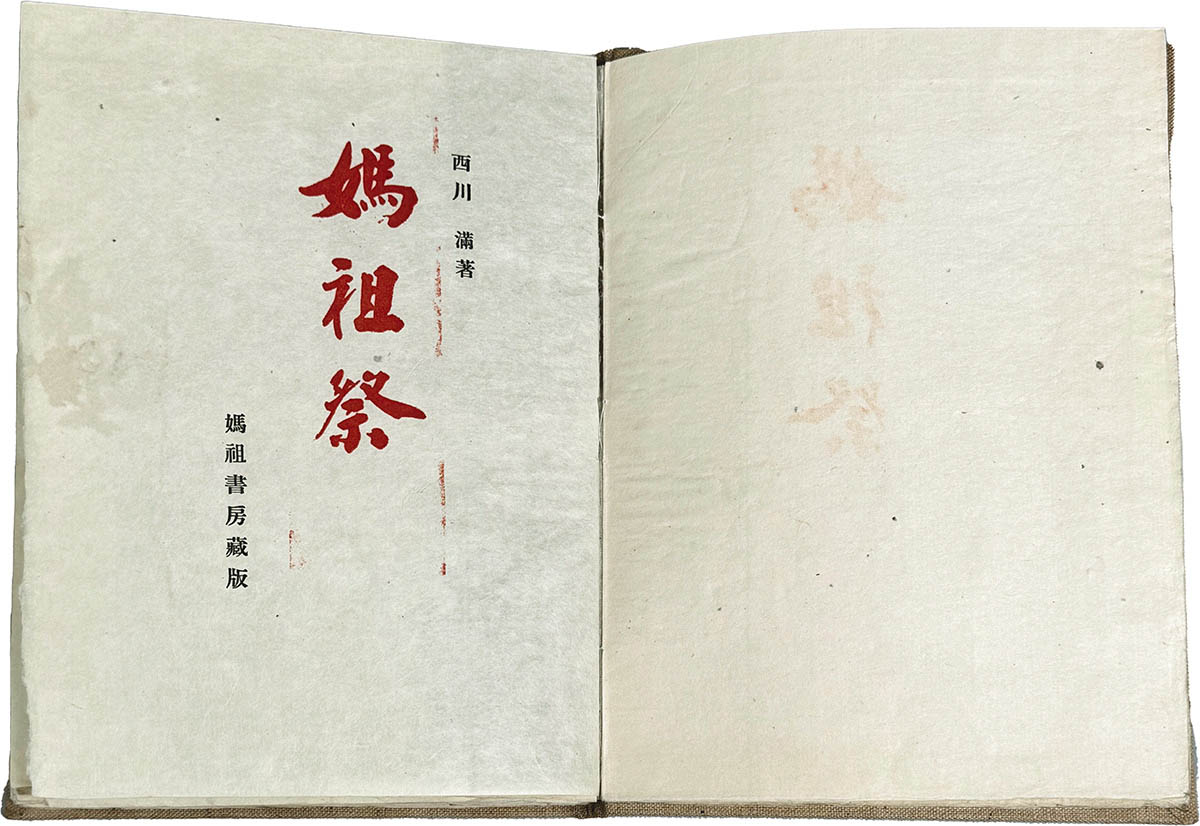 西川 滿著
媽祖祭
媽祖書房藏版